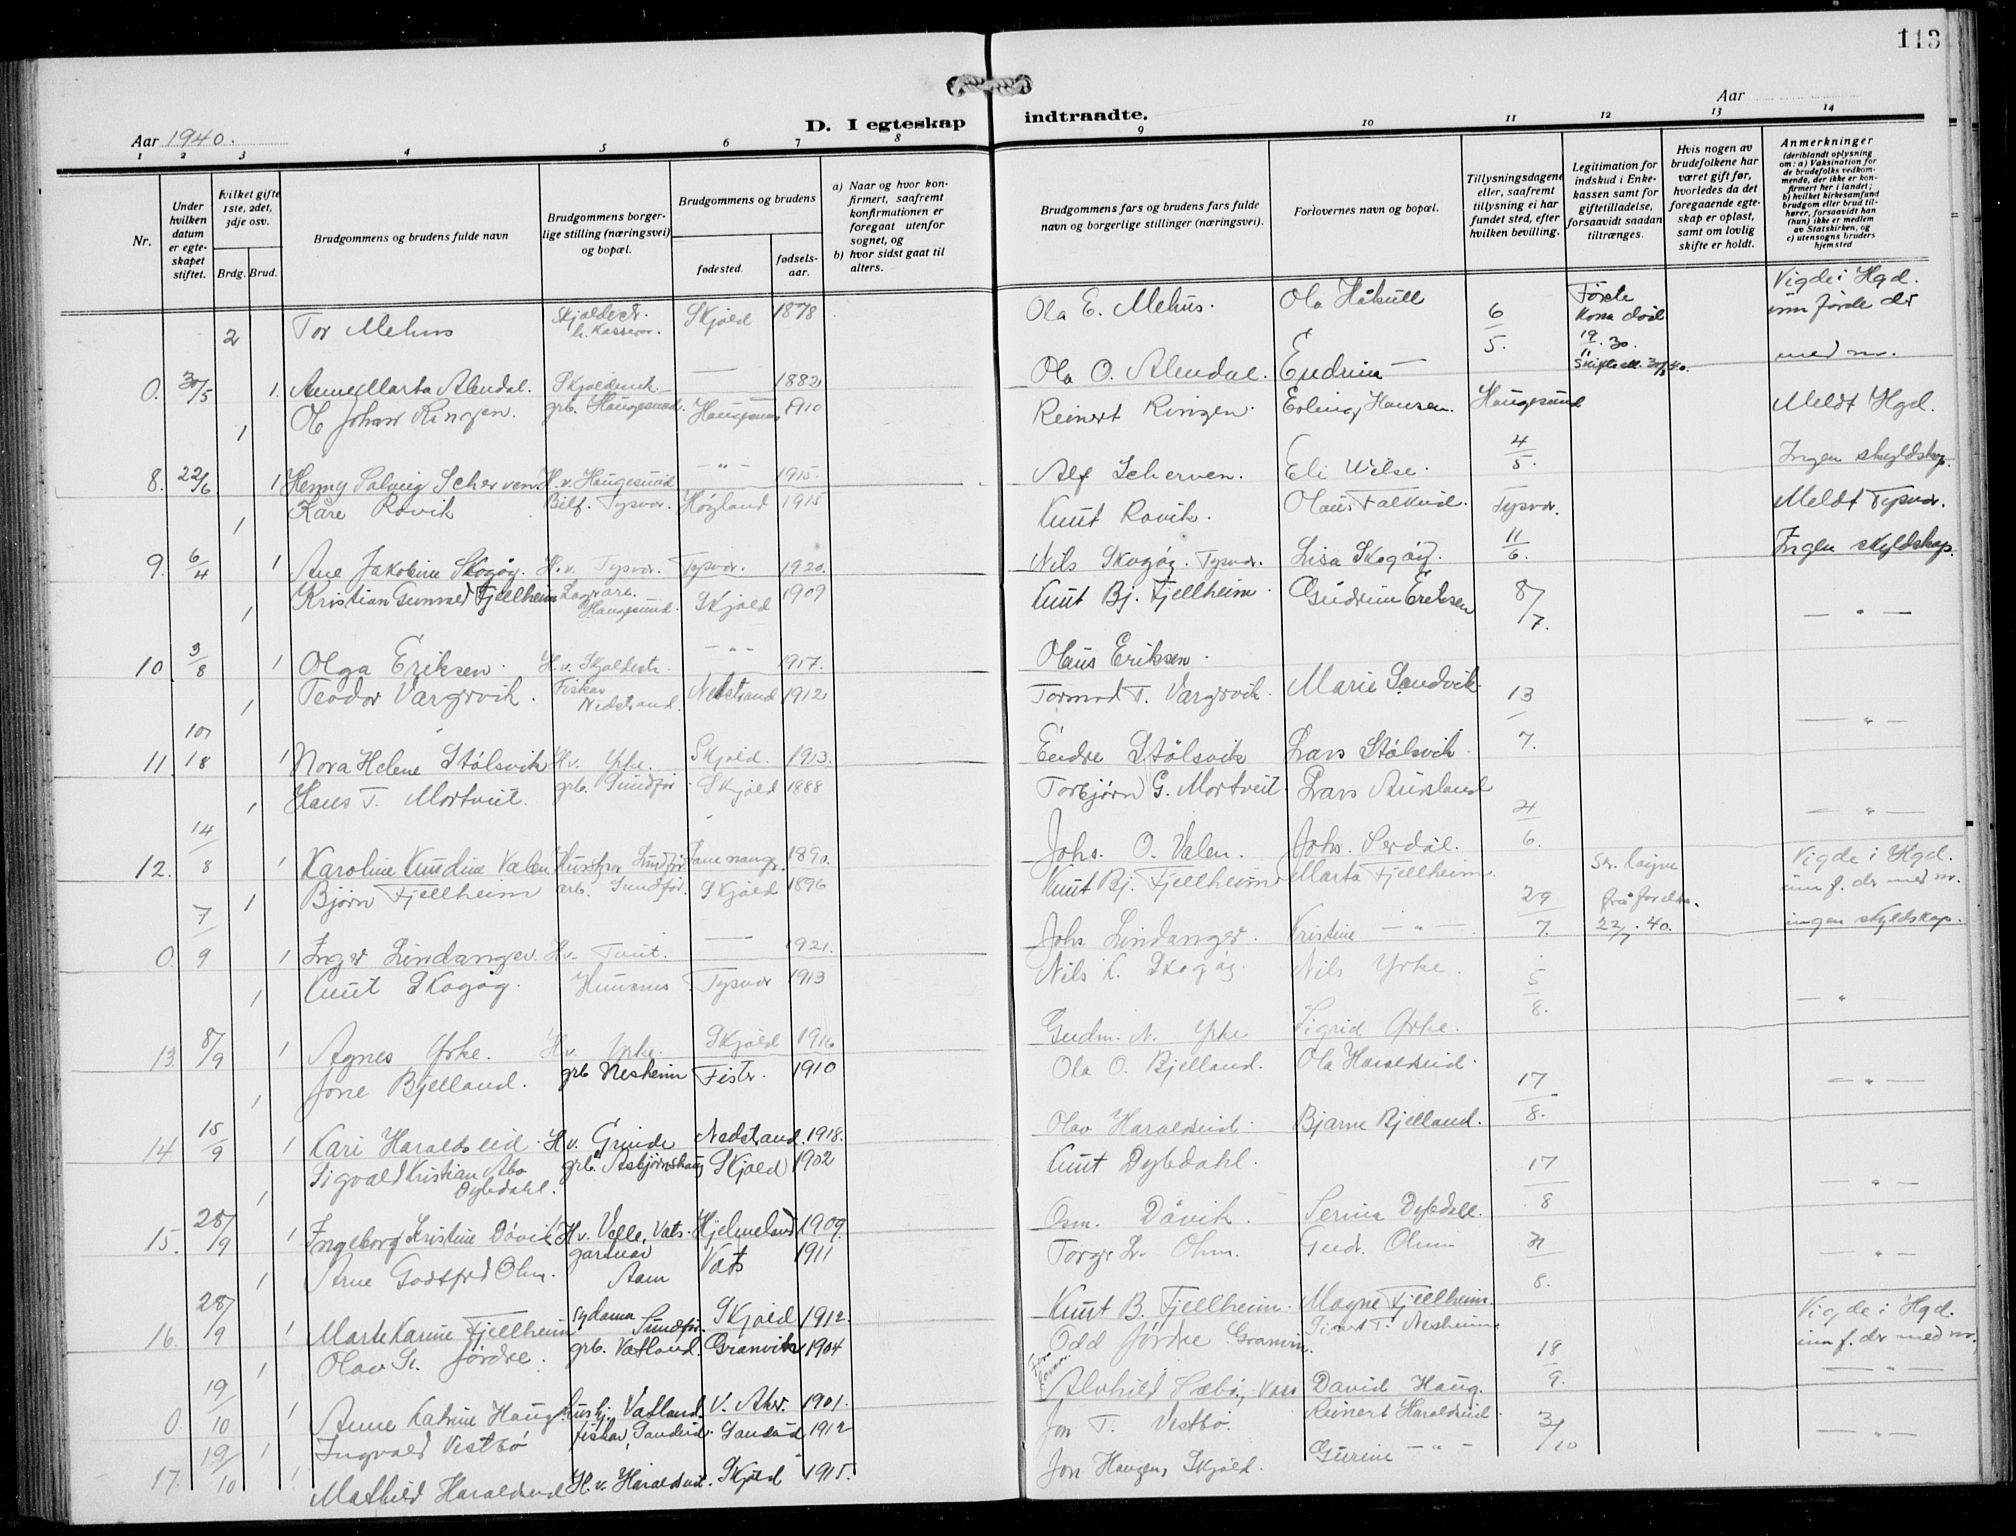 113
Aar 1940.
D. I egteskap
indtraadte.
Aar
1 2 3 4 5 6 7 8
9 10 11 12 13 14
Nr.
Under hvilken datum er egteskapet stiftet.
Hvilket gifte 1ste, 2det, 3dje osv.
Brdg. Brud.
Brudgommens og brudens fulde navn
Brudgommens borgerlige stilling (næringsvei) og bopæl.
Brudgommens og brudens
fødested.
fødselsaar.
a) Naar og hvor konfirmert, saafremt konfirmationen er foregaat utenfor sognet, og
b) hvor sidst gaat til alters.
Brudgommens fars og brudens fars fulde navn og borgerlige stillinger (næringsvei).
Forlovernes navn og bopæl.
Tillysningsdagene eller, saafremt tillysning ei har fundet sted, efter hvilken bevilling.
Legitimation for indskud i Enkekassen samt for giftetilladelse, forsaavidt saadan tiltrænges.
Hvis nogen av brudefolkene har været gift før, hvorledes da det foregaaende egteskap er opløst, samt om lovlig skifte er holdt.
Anmerkninger
(deriblandt oplysning om: a) Vaksination for de brudefolks vedkommende, der ikke er konfirmert her i landet; b) hvilket kirkesamfund brudgom eller brud tilhører, forsaavidt han (hun) ikke er medlem av Statskirken, og c) utensogns bruders hjemsted
2 Tor Mehus Skjoldestr. h. Kasserer. Skjold 1878 Ola E. Mehus. 6/5. Første Kona död 19/11.30. Vigde i Hgd.
0. 30/5 1. Anne Marta Alendal. Skjoldestr. — 1882 Ola O. Alendal. Endrine — med nr.
1 Ol. Johan Ringen. grb. Haugesund. Haugesund 1910 Reinert Ringen. Erling Hansen. Haugesund Meldt Hgd.
8. 22/6 1 Henny Solveig Scherven H.v. Haugesund — " — 1915. Alf Scherven. Eli Wilse. 4/5. Ingen skyldskap.
1 Kåre Rovik Bilf. Tysvær. Høyland 1915 Knut Rovik. Olaus Falkeid. Tysvær. Meldt Tysvær.
9. 6/4 1 Ane Jakobine Skogøy. H.v. Tysvær. Tysvær. 1920. Nils Skogøy. Tysvær. Lisa Skogøy. 11/6. Ingen skyldskap.
1 Kristian Gunnar Fjellheim Lagerarb. Haugesund. Skjold 1909 Knut Bj. Fjellheim. Gudrun Eriksen 8/7. — " —
10 3/8 1 Olga Eriksen. H.v. Skjoldestr. — " — 1917. Olaus Eriksen.
1 Teodor Vargvik. Fiskar Nedstrand. Nedstrand 1912 Tormod T. Vargvik. Marie Sandvik. 13/7. — " —
11. 10/8 1 Nora Helene Stölsvik H.v. Yrke. Skjold. 1913. Endre Stölsvik Lars Stölsvik.
1 Hans T. Mortveit. grb. Sundfør Skjold 1888 Torbjørn G. Mortveit. Lars Aursland 21/6. — " —
12. 14/8 1 Karoline Knudine Valen Hushj. Sundfør 1890. Johs. O. Valen. Johs. Serdal.
1 Bjørn Fjellheim arb. Sundfør. Skjold 1896 Knut Bj. Fjellheim Marta Fjellheim. 29/7. frå foreldr. 22/7.40. Vigde i Hgd. inn f. dr med nr.
0. 7/9 1 Inger Lindanger. H.v. Tveit. — 1921. Johs Lindanger. Kristine — " — ingen skyldskap.
1 Knut Skogøy. Tysvær 1913 Nils K. Skogøy. Nils Yrke. 5/8. — " —
13. 8/9 1 Agnes Yrke. H.v. Yrke. Skjold 1916 Gudm. N. Yrke Sigrid Yrke.
1 Jone Bjelland. grb Nesheim Fister. 1910 Ola O. Bjelland. Ola Haraldseid. 17/8. — " —
14 15/9 1 Kari Haraldseid H.v. Grinde Nedstrand. 1918. Olav Haraldseid. Bjarne Bjelland.
1 Sigvald Kristian Abo Dybdahl. grb. Asbjørnshaug Skjold 1902 Knut Dybdahl. 17/8 — " —
15. 28/9 1 Ingeborg Kristine Dåvik H.v. Velle, Vats. Hjelmeland 1909. Osm. Dåvik. Serina Dybdal.
1 Arne Godtfred Ohm. gartnar Aam Vats 1911 Torgr. L. Ohm. Gudr. Ohm 31/8. — " —
16. 28/9 1 Marte Karine Fjellheim sydama Sundfør. Skjold 1912. Knut B. Fjellheim. Magne Fjellheim.
1 Olav S. Jördre. grb. Vatland. Granvin 1904 Odd Jördre Granvin. Sivert T. Nesheim 18/9. Vigde i Hgd. inn f. dr med nr.
0. 19/10 1 Anne Katrine Haug Hushj. Vatland. V. Aker. 1901. Alvhild Sæbø, Vass David Haug. — " —
1 Ingvald Vestbö fiskar, Sandeid. Sandeid 1912 Jon T. Vestbö. Reinert Haraldseid 3/10 — " —
17. 19/10 1 Mathild Haraldseid H.v. Haraldseid. Skjold 1915. Jon Haugen, Skjold. Gurine — " —